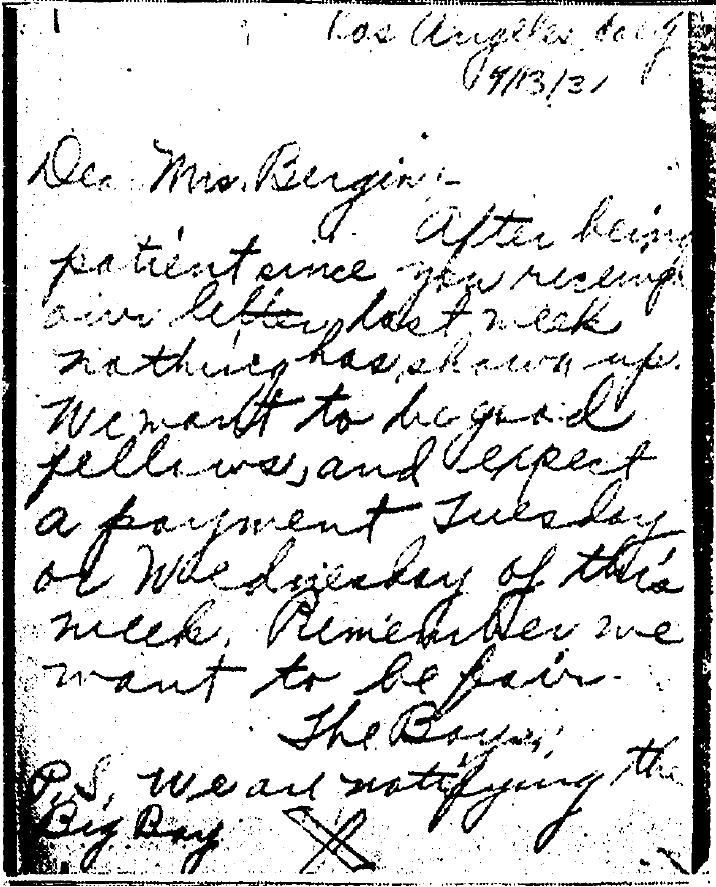 Los Angeles, Calif
9/13/31
Dea Mrs. Bergin:-
After being
patient since you recieving
our letter last week
nothing has shown up.
We want to be good
fellows, and expect
a payment Tuesday
or Wednesday of this
week. Remember we
want to be fair.
The Boys.
P.S. We are notifying the
Big Boy